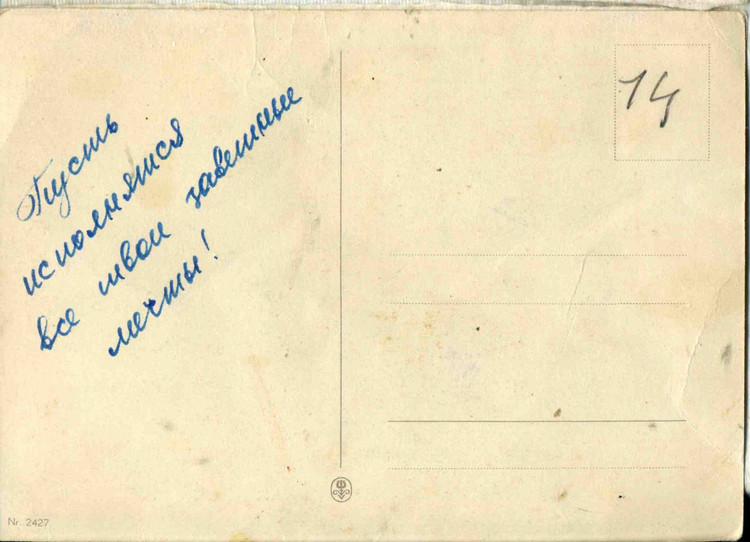 Пусть
исполнятся
все твои заветные
мечты!
14
Nr. 2427